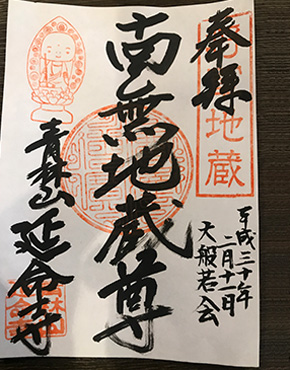 奉拝
地蔵
平成三十年
二月十一日
大般若会
南無地蔵尊
青林山 延命寺